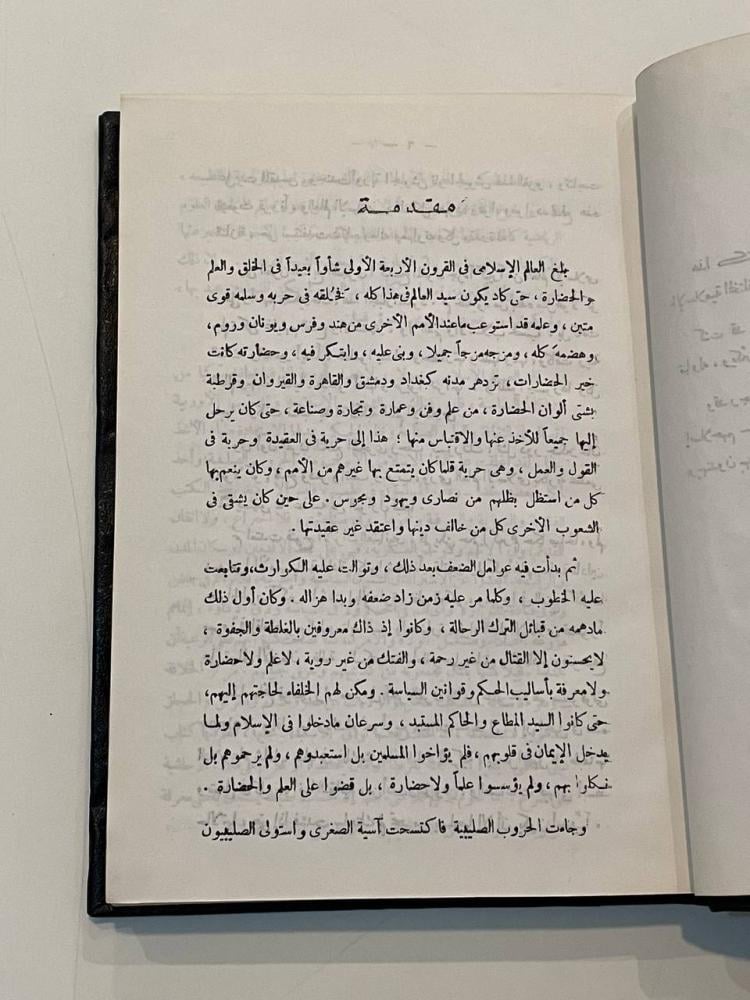 مقدمة
بلغ العالم الإسلامى فى القرون الأربعة الأولى شأواً بعيداً فى الخلق والعلم
والحضارة ، حتى كاد يكون سيد العالم فى هذا كله ، فخُلقه فى حربه وسلمه قوى
متين ، وعلمه قد استوعب ما عند الأمم الأخرى من هند وفرس ويونان وروم ،
وهضمه كله ، ومزجه مزجاً جميلا ، وبنى عليه ، وابتكر فيه ، وحضارته كانت
خير الحضارات ، تزدهر مدنه كبغداد ودمشق والقاهرة والقيروان وقرطبة
بشتى ألوان الحضارة ، من علم وفن وعمارة وتجارة وصناعة ، حتى كان يرحل
إليها جميعاً للأخذ عنها والاقتباس منها ؛ هذا إلى حرية فى العقيدة وحرية فى
القول والعمل ، وهى حرية قلما كان يتمتع بها غيرهم من الأمم ، وكان ينعم بها
كل من استظل بظلهم من نصارى ويهود ومجوس . على حين كان يشقى فى
الشعوب الأخرى كل من خالف دينها واعتقد غير عقيدتها .
ثم بدأت فيه عوامل الضعف بعد ذلك ، وتوالت عليه الكوارث ، وتتابعت
عليه الخطوب ، وكلما مر عليه زمن زاد ضعفه وبدا هزاله . وكان أول ذلك
ما دهمه من قبائل الترك الرحالة ، وكانوا إذ ذاك معروفين بالغلظة والجفوة ،
لا يحسنون إلا القتال من غير رحمة ، والفتك من غير روية ، لا علم ولا حضارة
ولا معرفة بأساليب الحكم وقوانين السياسة . ومكن لهم الخلفاء لحاجتهم إليهم،
حتى كانوا السيد المطاع والحاكم المستبد ، وسرعان ما دخلوا فى الإسلام ولما
يدخل الإيمان فى قلوبهم ، فلم يؤاخوا المسلمين بل استعبدوهم ، ولم يرحموهم بل
نكلوا بهم ، ولم يؤسسوا علماً ولا حضارة ، بل قضوا على العلم والحضارة .
وجاءت الحروب الصليبية فاكتسحت آسية الصغرى واستولى الصليبيون